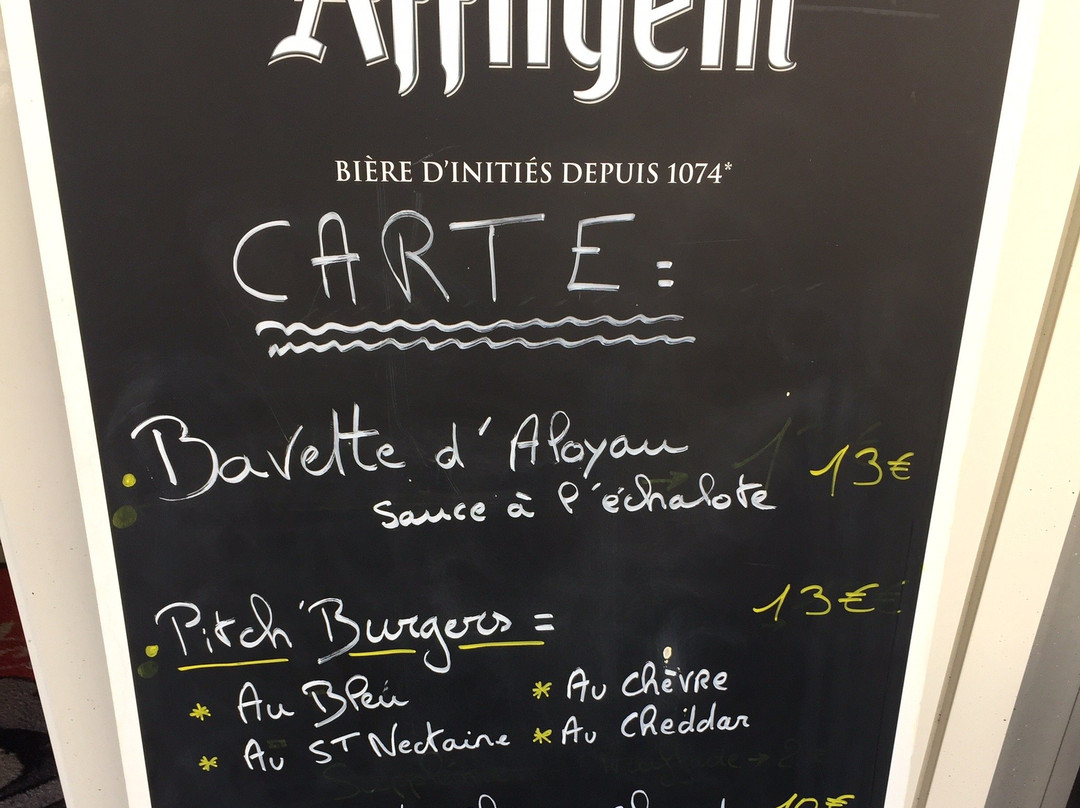 Affligem
BIÈRE D'INITIÉS DEPUIS 1074*
CARTE :
Bavette d'Aloyau 13€
sauce à l'échalote
Pitch Burgers = 13€
* Au Bleu * Au Chèvre
* Au ST Nectaire * Au Cheddar
10€